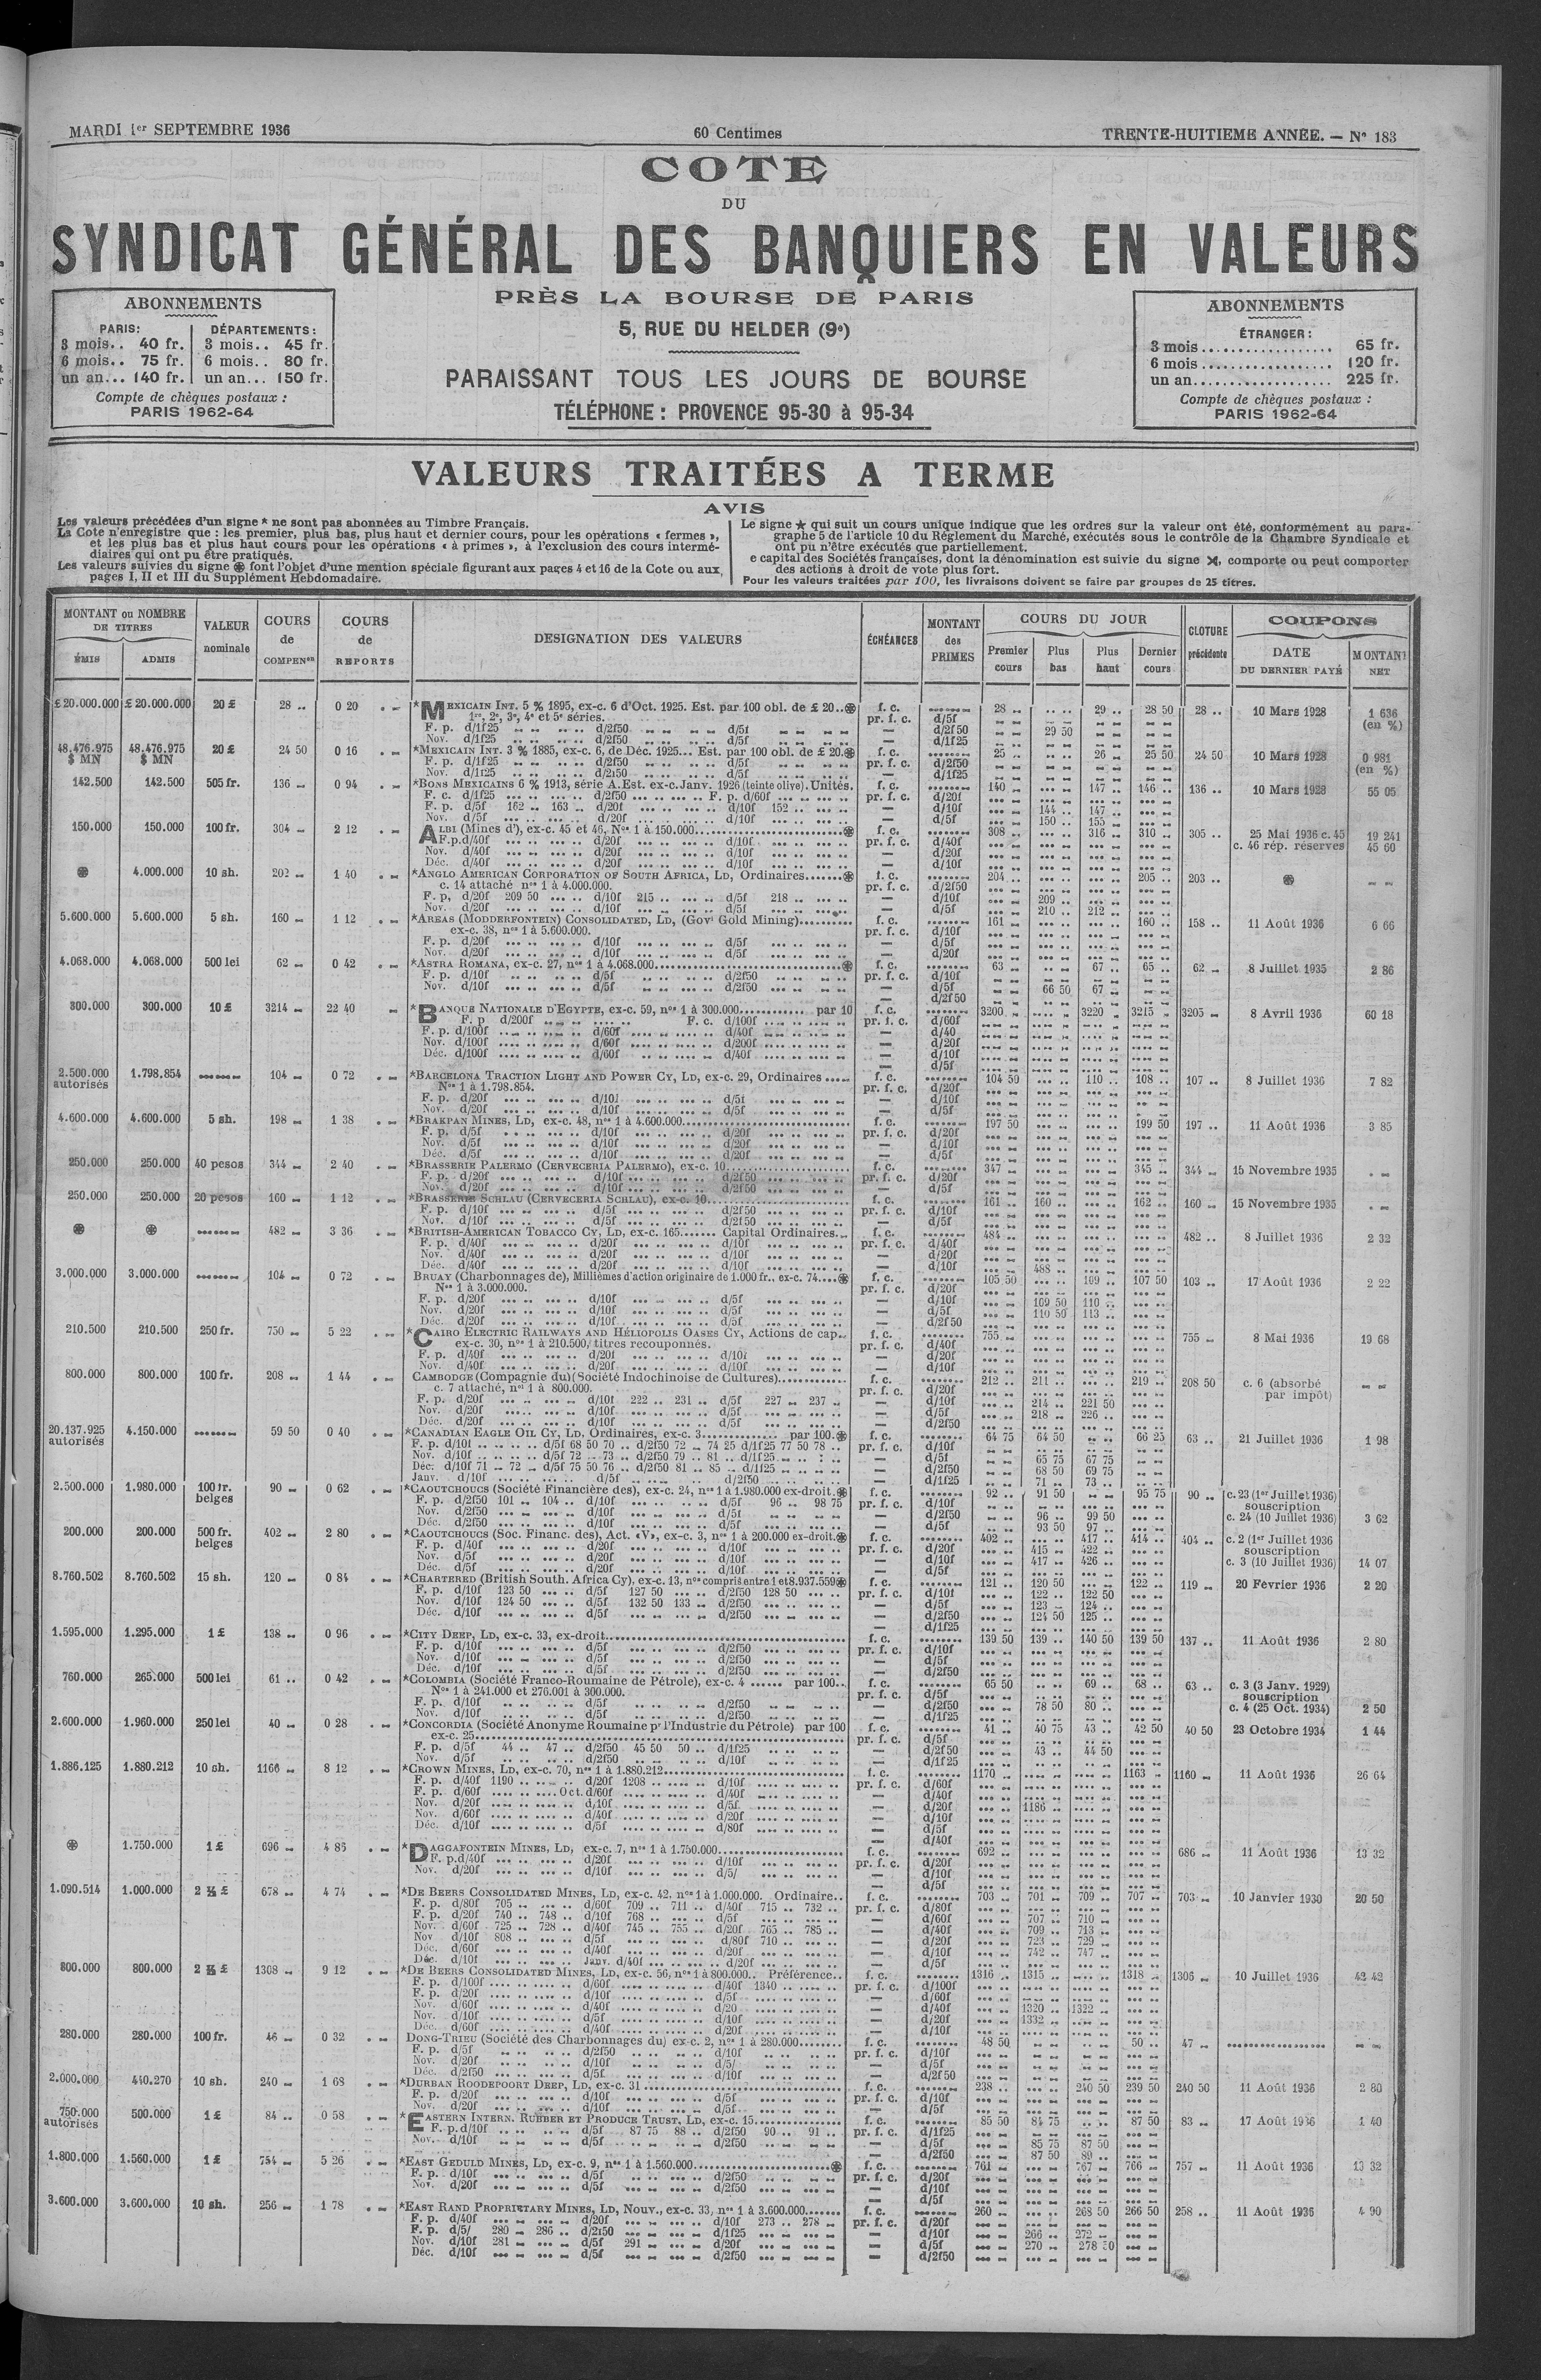 MARDI 1er SEPTEMBRE 1936
60 Centimes
TRENTE-HUITIEME ANNÉE. — N° 183
COTE
DU
SYNDICAT GÉNÉRAL DES BANQUIERS EN VALEURS
PRÈS LA BOURSE DE PARIS
5, RUE DU HELDER (9e)
PARAISSANT TOUS LES JOURS DE BOURSE
TÉLÉPHONE : PROVENCE 95-30 à 95-34
ABONNEMENTS
PARIS: DÉPARTEMENTS:
3 mois.. 40 fr. 3 mois.. 45 fr.
6 mois.. 75 fr. 6 mois.. 80 fr.
un an... 140 fr. un an... 150 fr.
Compte de chèques postaux :
PARIS 1962-64
ABONNEMENTS
ÉTRANGER :
3 mois.................. 65 fr.
6 mois.................. 120 fr.
un an................... 225 fr.
Compte de chèques postaux :
PARIS 1962-64
VALEURS TRAITÉES A TERME
AVIS
Les valeurs précédées d'un signe * ne sont pas abonnées au Timbre Français.
La Cote n'enregistre que : les premier, plus bas, plus haut et dernier cours, pour les opérations « fermes »,
et les plus bas et plus haut cours pour les opérations « à primes », à l'exclusion des cours intermé-
diaires qui ont pu être pratiqués.
Les valeurs suivies du signe ⊛ font l'objet d'une mention spéciale figurant aux pages 4 et 16 de la Cote ou aux
pages I, II et III du Supplément Hebdomadaire.
Le signe ★ qui suit un cours unique indique que les ordres sur la valeur ont été, conformément au para-
graphe 5 de l'article 10 du Règlement du Marché, exécutés sous le contrôle de la Chambre Syndicale et
ont pu n'être exécutés que partiellement.
e capital des Sociétés françaises, dont la dénomination est suivie du signe, comporte ou peut comporter
des actions à droit de vote plus fort.
Pour les valeurs traitées par 100, les livraisons doivent se faire par groupes de 25 titres.
MONTANT ou NOMBRE DE TITRES
ÉMIS ADMIS
VALEUR nominale
COURS de COMPENon
COURS de REPORTS
DESIGNATION DES VALEURS
ÉCHÉANCES
MONTANT des PRIMES
COURS DU JOUR
Premier cours Plus bas Plus haut Dernier cours
CLOTURE précédente
COUPONS
DATE DU DERNIER PAYÉ
MONTANT NET
£ 20.000.000 £ 20.000.000 20 £ 28 .. 0 20 *MEXICAIN INT. 5 % 1895, ex-c. 6 d'Oct. 1925. Est. par 100 obl. de £ 20..⊛ f. c. 28 .. 29 .. 28 50 28 .. 10 Mars 1928 1 636 (en %)
1re, 2e, 3e, 4e et 5e séries. pr. f. c. d/5f
29 50
48.476.975 $ MN 48.476.975 $ MN 20 £ 24 50 0 16 *MEXICAIN INT. 3 % 1885, ex-c. 6, de Déc. 1925... Est. par 100 obl. de £ 20.⊛ f. c. 25 .. 26 .. 25 50 24 50 10 Mars 1928 0 981 (en %)
142.500 142.500 505 fr. 136 .. 0 94 *BONS MEXICAINS 6 % 1913, série A. Est. ex-c. Janv. 1926 (teinte olive). Unités. f. c. 140 .. 147 .. 146 .. 136 .. 10 Mars 1928 55 05
F. p. d/5f 162 .. 163 .. d/20f d/10f 152 .. 144 .. 147 ..
150 .. 155 ..
150.000 150.000 100 fr. 304 .. 2 12 ALBI (Mines d'), ex-c. 45 et 46, Nos 1 à 150.000 ⊛ f. c. 308 .. 316 .. 310 .. 305 .. 25 Mai 1936 c. 45 19 241
c. 46 rép. réserves 45 60
⊛ 4.000.000 10 sh. 202 .. 1 40 *ANGLO AMERICAN CORPORATION OF SOUTH AFRICA, LD, Ordinaires ⊛ f. c. 204 .. 205 .. 203 .. ⊛
c. 14 attaché nos 1 à 4.000.000.
F. p. d/20f 209 50 d/10f 215 .. d/5f 218 .. 209 ..
210 .. 212 ..
5.600.000 5.600.000 5 sh. 160 .. 1 12 *AREAS (MODDERFONTEIN) CONSOLIDATED, LD, (Govt Gold Mining) f. c. 161 .. 160 .. 158 .. 11 Août 1936 6 66
ex-c. 38, nos 1 à 5.600.000.
4.068.000 4.068.000 500 lei 62 .. 0 42 *ASTRA ROMANA, ex-c. 27, nos 1 à 4.068.000 ⊛ f. c. 63 .. 67 .. 65 .. 62 .. 8 Juillet 1935 2 86
66 50 67 ..
300.000 300.000 10 £ 3214 .. 22 40 *BANQUE NATIONALE D'EGYPTE, ex-c. 59, nos 1 à 300.000 par 10 f. c. 3200 .. 3220 .. 3215 .. 3205 .. 8 Avril 1936 60 18
2.500.000 autorisés 1.798.854 104 .. 0 72 *BARCELONA TRACTION LIGHT AND POWER CY, LD, ex-c. 29, Ordinaires f. c. 104 50 110 .. 108 .. 107 .. 8 Juillet 1936 7 82
Nos 1 à 1.798.854.
4.600.000 4.600.000 5 sh. 198 .. 1 38 *BRAKPAN MINES, LD, ex-c. 48, nos 1 à 4.600.000 f. c. 197 50 199 50 197 .. 11 Août 1936 3 85
250.000 250.000 40 pesos 344 .. 2 40 *BRASSERIE PALERMO (CERVECERIA PALERMO), ex-c. 10 f. c. 347 .. 345 .. 344 .. 15 Novembre 1935
250.000 250.000 20 pesos 160 .. 1 12 *BRASSERIE SCHLAU (CERVECERIA SCHLAU), ex-c. 10 f. c. 161 .. 160 .. 162 .. 160 .. 15 Novembre 1935
⊛ ⊛ 482 .. 3 36 *BRITISH-AMERICAN TOBACCO CY, LD, ex-c. 165 Capital Ordinaires f. c. 484 .. 482 .. 8 Juillet 1936 2 32
488 ..
3.000.000 3.000.000 104 .. 0 72 BRUAY (Charbonnages de), Millièmes d'action originaire de 1.000 fr., ex-c. 74 ⊛ f. c. 105 50 109 .. 107 50 103 .. 17 Août 1936 2 22
Nos 1 à 3.000.000.
109 50 110 ..
110 50 113 ..
210.500 210.500 250 fr. 750 .. 5 22 *CAIRO ELECTRIC RAILWAYS AND HÉLIOPOLIS OASES CY, Actions de cap. f. c. 755 .. 755 .. 8 Mai 1936 19 68
ex-c. 30, nos 1 à 210.500, titres recouponnés.
800.000 800.000 100 fr. 208 .. 1 44 CAMBODGE (Compagnie du) (Société Indochinoise de Cultures) f. c. 212 .. 211 .. 219 .. 208 50 c. 6 (absorbé par impôt)
c. 7 attaché, nos 1 à 800.000.
F. p. d/20f d/10f 222 .. 231 .. d/5f 227 .. 237 .. 214 .. 221 50
218 .. 226 ..
20.137.925 autorisés 4.150.000 59 50 0 40 *CANADIAN EAGLE OIL CY, LD, Ordinaires, ex-c. 3 par 100.⊛ f. c. 64 75 64 50 66 25 63 .. 21 Juillet 1936 1 98
F. p. d/10f d/5f 68 50 70 .. d/2f50 72 .. 74 25 d/1f25 77 50 78 ..
Nov. d/10f d/5f 72 .. 73 .. d/2f50 79 .. 81 .. d/1f25 65 75 67 75
Déc. d/10f 71 .. 72 .. d/5f 75 50 76 .. d/2f50 81 .. 85 .. d/1f25 68 50 69 75
71 .. 73 ..
2.500.000 1.980.000 100 fr. belges 90 .. 0 62 *CAOUTCHOUCS (Société Financière des), ex-c. 24, nos 1 à 1.980.000 ex-droit.⊛ f. c. 92 .. 91 50 95 75 90 .. c. 23 (1er Juillet 1936) souscription
F. p. d/2f50 101 .. 104 .. d/10f d/5f 96 .. 98 75 c. 24 (10 Juillet 1936) 3 62
96 .. 99 50
93 50 97 ..
200.000 200.000 500 fr. belges 402 .. 2 80 *CAOUTCHOUCS (Soc. Financ. des), Act. «V», ex-c. 3, nos 1 à 200.000 ex-droit.⊛ f. c. 402 .. 417 .. 414 .. 404 .. c. 2 (1er Juillet 1936 souscription
415 .. 422 .. c. 3 (10 Juillet 1936) 14 07
417 .. 426 ..
8.760.502 8.760.502 15 sh. 120 .. 0 84 *CHARTERED (British South. Africa Cy), ex-c. 13, nos compris entre 1 et 8.937.559⊛ f. c. 121 .. 120 50 122 .. 119 .. 20 Février 1936 2 20
F. p. d/10f 123 50 d/5f 127 50 d/2f50 128 50 122 .. 122 50
Nov. d/10f 124 50 d/5f 132 50 133 .. d/2f50 123 .. 124 ..
124 50 125 ..
1.595.000 1.295.000 1 £ 138 .. 0 96 *CITY DEEP, LD, ex-c. 33, ex-droit f. c. 139 50 139 .. 140 50 139 50 137 .. 11 Août 1936 2 80
760.000 265.000 500 lei 61 .. 0 42 *COLOMBIA (Société Franco-Roumaine de Pétrole), ex-c. 4 par 100 f. c. 65 50 69 .. 68 .. 63 .. c. 3 (3 Janv. 1929) souscription
Nos 1 à 241.000 et 276.001 à 300.000. c. 4 (25 Oct. 1934) 2 50
78 50 80 ..
2.600.000 1.960.000 250 lei 40 .. 0 28 *CONCORDIA (Société Anonyme Roumaine pr l'Industrie du Pétrole) par 100 f. c. 41 .. 40 75 43 .. 42 50 40 50 23 Octobre 1934 1 44
ex-c. 25
F. p. d/5f 44 .. 47 .. d/2f50 45 50 50 .. d/1f25 43 .. 44 50
1.886.125 1.880.212 10 sh. 1166 .. 8 12 *CROWN MINES, LD, ex-c. 70, nos 1 à 1.880.212 f. c. 1170 .. 1163 .. 1160 .. 11 Août 1936 26 64
F. p. d/40f 1190 .. d/20f 1208 .. d/10f
1186 ..
⊛ 1.750.000 1 £ 696 .. 4 86 *DAGGAFONTEIN MINES, LD, ex-c. 7, nos 1 à 1.750.000 f. c. 692 .. 686 .. 11 Août 1936 13 32
1.090.514 1.000.000 2 ½ £ 678 .. 4 74 *DE BEERS CONSOLIDATED MINES, LD, ex-c. 42, nos 1 à 1.000.000. Ordinaire f. c. 703 .. 701 .. 709 .. 707 .. 703 .. 10 Janvier 1930 20 50
F. p. d/80f 705 .. d/60f 709 .. 711 .. d/40f 715 .. 732 ..
F. p. d/20f 740 .. 748 .. d/10f 768 .. d/5f 707 .. 710 ..
Nov. d/60f 725 .. 728 .. d/40f 745 .. 755 .. d/20f 765 .. 785 .. 709 .. 713 ..
Nov d/10f 808 .. d/5f d/80f 710 .. 723 .. 729 ..
742 .. 747 ..
800.000 800.000 2 ½ £ 1308 .. 9 12 *DE BEERS CONSOLIDATED MINES, LD, ex-c. 56, nos 1 à 800.000.. Préférence f. c. 1316 .. 1315 .. 1318 .. 1306 .. 10 Juillet 1936 42 42
F. p. d/100f d/60f d/40f 1340 ..
1320 .. 1322 ..
1332 ..
280.000 280.000 100 fr. 46 .. 0 32 DONG-TRIEU (Société des Charbonnages du) ex-c. 2, nos 1 à 280.000 f. c. 48 50 50 .. 47 ..
2.000.000 440.270 10 sh. 240 .. 1 68 *DURBAN ROODEPOORT DEEP, LD, ex-c. 31 f. c. 238 .. 240 50 239 50 240 50 11 Août 1936 2 80
750.000 autorisés 500.000 1 £ 84 .. 0 58 *EASTERN INTERN. RUBBER ET PRODUCE TRUST, LD, ex-c. 15 f. c. 85 50 84 75 87 50 83 .. 17 Août 1936 1 40
F. p. d/10f d/5f 87 75 88 .. d/2f50 90 .. 91 ..
85 75 87 50
87 50 89 ..
1.800.000 1.560.000 1 £ 754 .. 5 26 *EAST GEDULD MINES, LD, ex-c. 9, nos 1 à 1.560.000 ⊛ f. c. 761 .. 767 .. 766 .. 757 .. 11 Août 1936 13 32
3.600.000 3.600.000 10 sh. 256 .. 1 78 *EAST RAND PROPRIETARY MINES, LD, Nouv., ex-c. 33, nos 1 à 3.600.000 f. c. 260 .. 268 50 266 50 258 .. 11 Août 1936 4 90
F. p. d/40f d/20f d/10f 273 .. 278 ..
F. p. d/5/ 280 .. 286 .. d/2f50 d/1f25 266 .. 272 ..
Nov. d/10f 281 .. d/5f 291 .. d/20f 270 ..
Déc. d/10f d/5f d/2f50